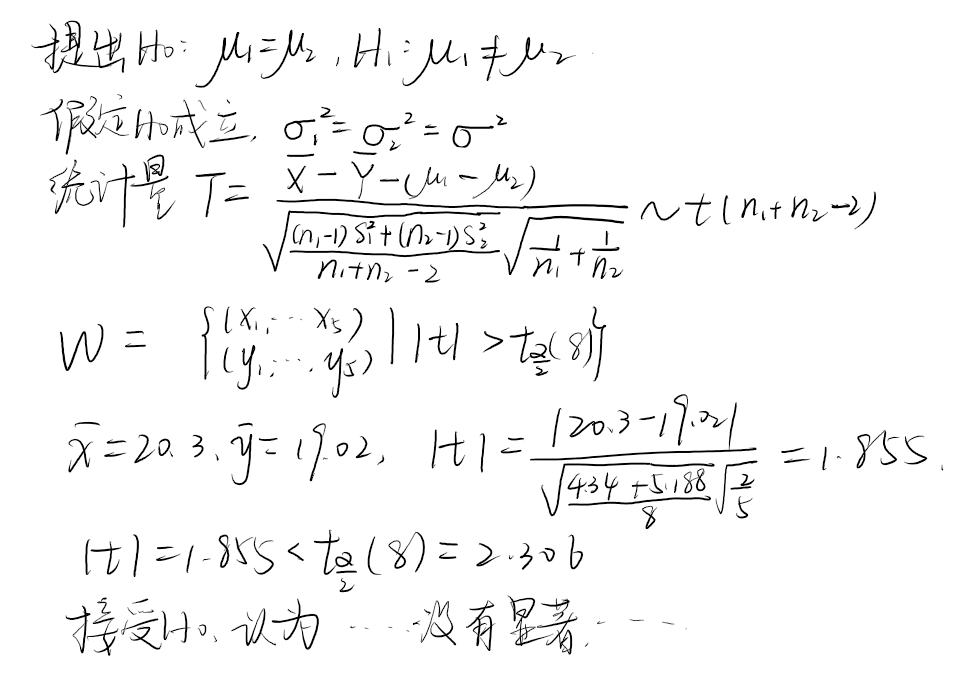 提出H₀: μ₁=μ₂, H₁: μ₁≠μ₂
假定H₀成立, σ₁²=σ₂²=σ²
统计量 T= (X̄-Ȳ-(μ₁-μ₂)) / (√(((n₁-1)S₁²+(n₂-1)S₂²)/(n₁+n₂-2)) √(1/n₁+1/n₂)) ~t(n₁+n₂-2)
W = {(x₁,…x₅) (y₁,…y₅) | |t|>t_{α/2}(8)}
x̄=20.3, ȳ=19.02, |t|= |20.3-19.02| / (√((4.34+5.188)/8) √(2/5)) =1.855.
|t|=1.855<t_{α/2}(8)=2.306
接受H₀, 认为……没有显著……